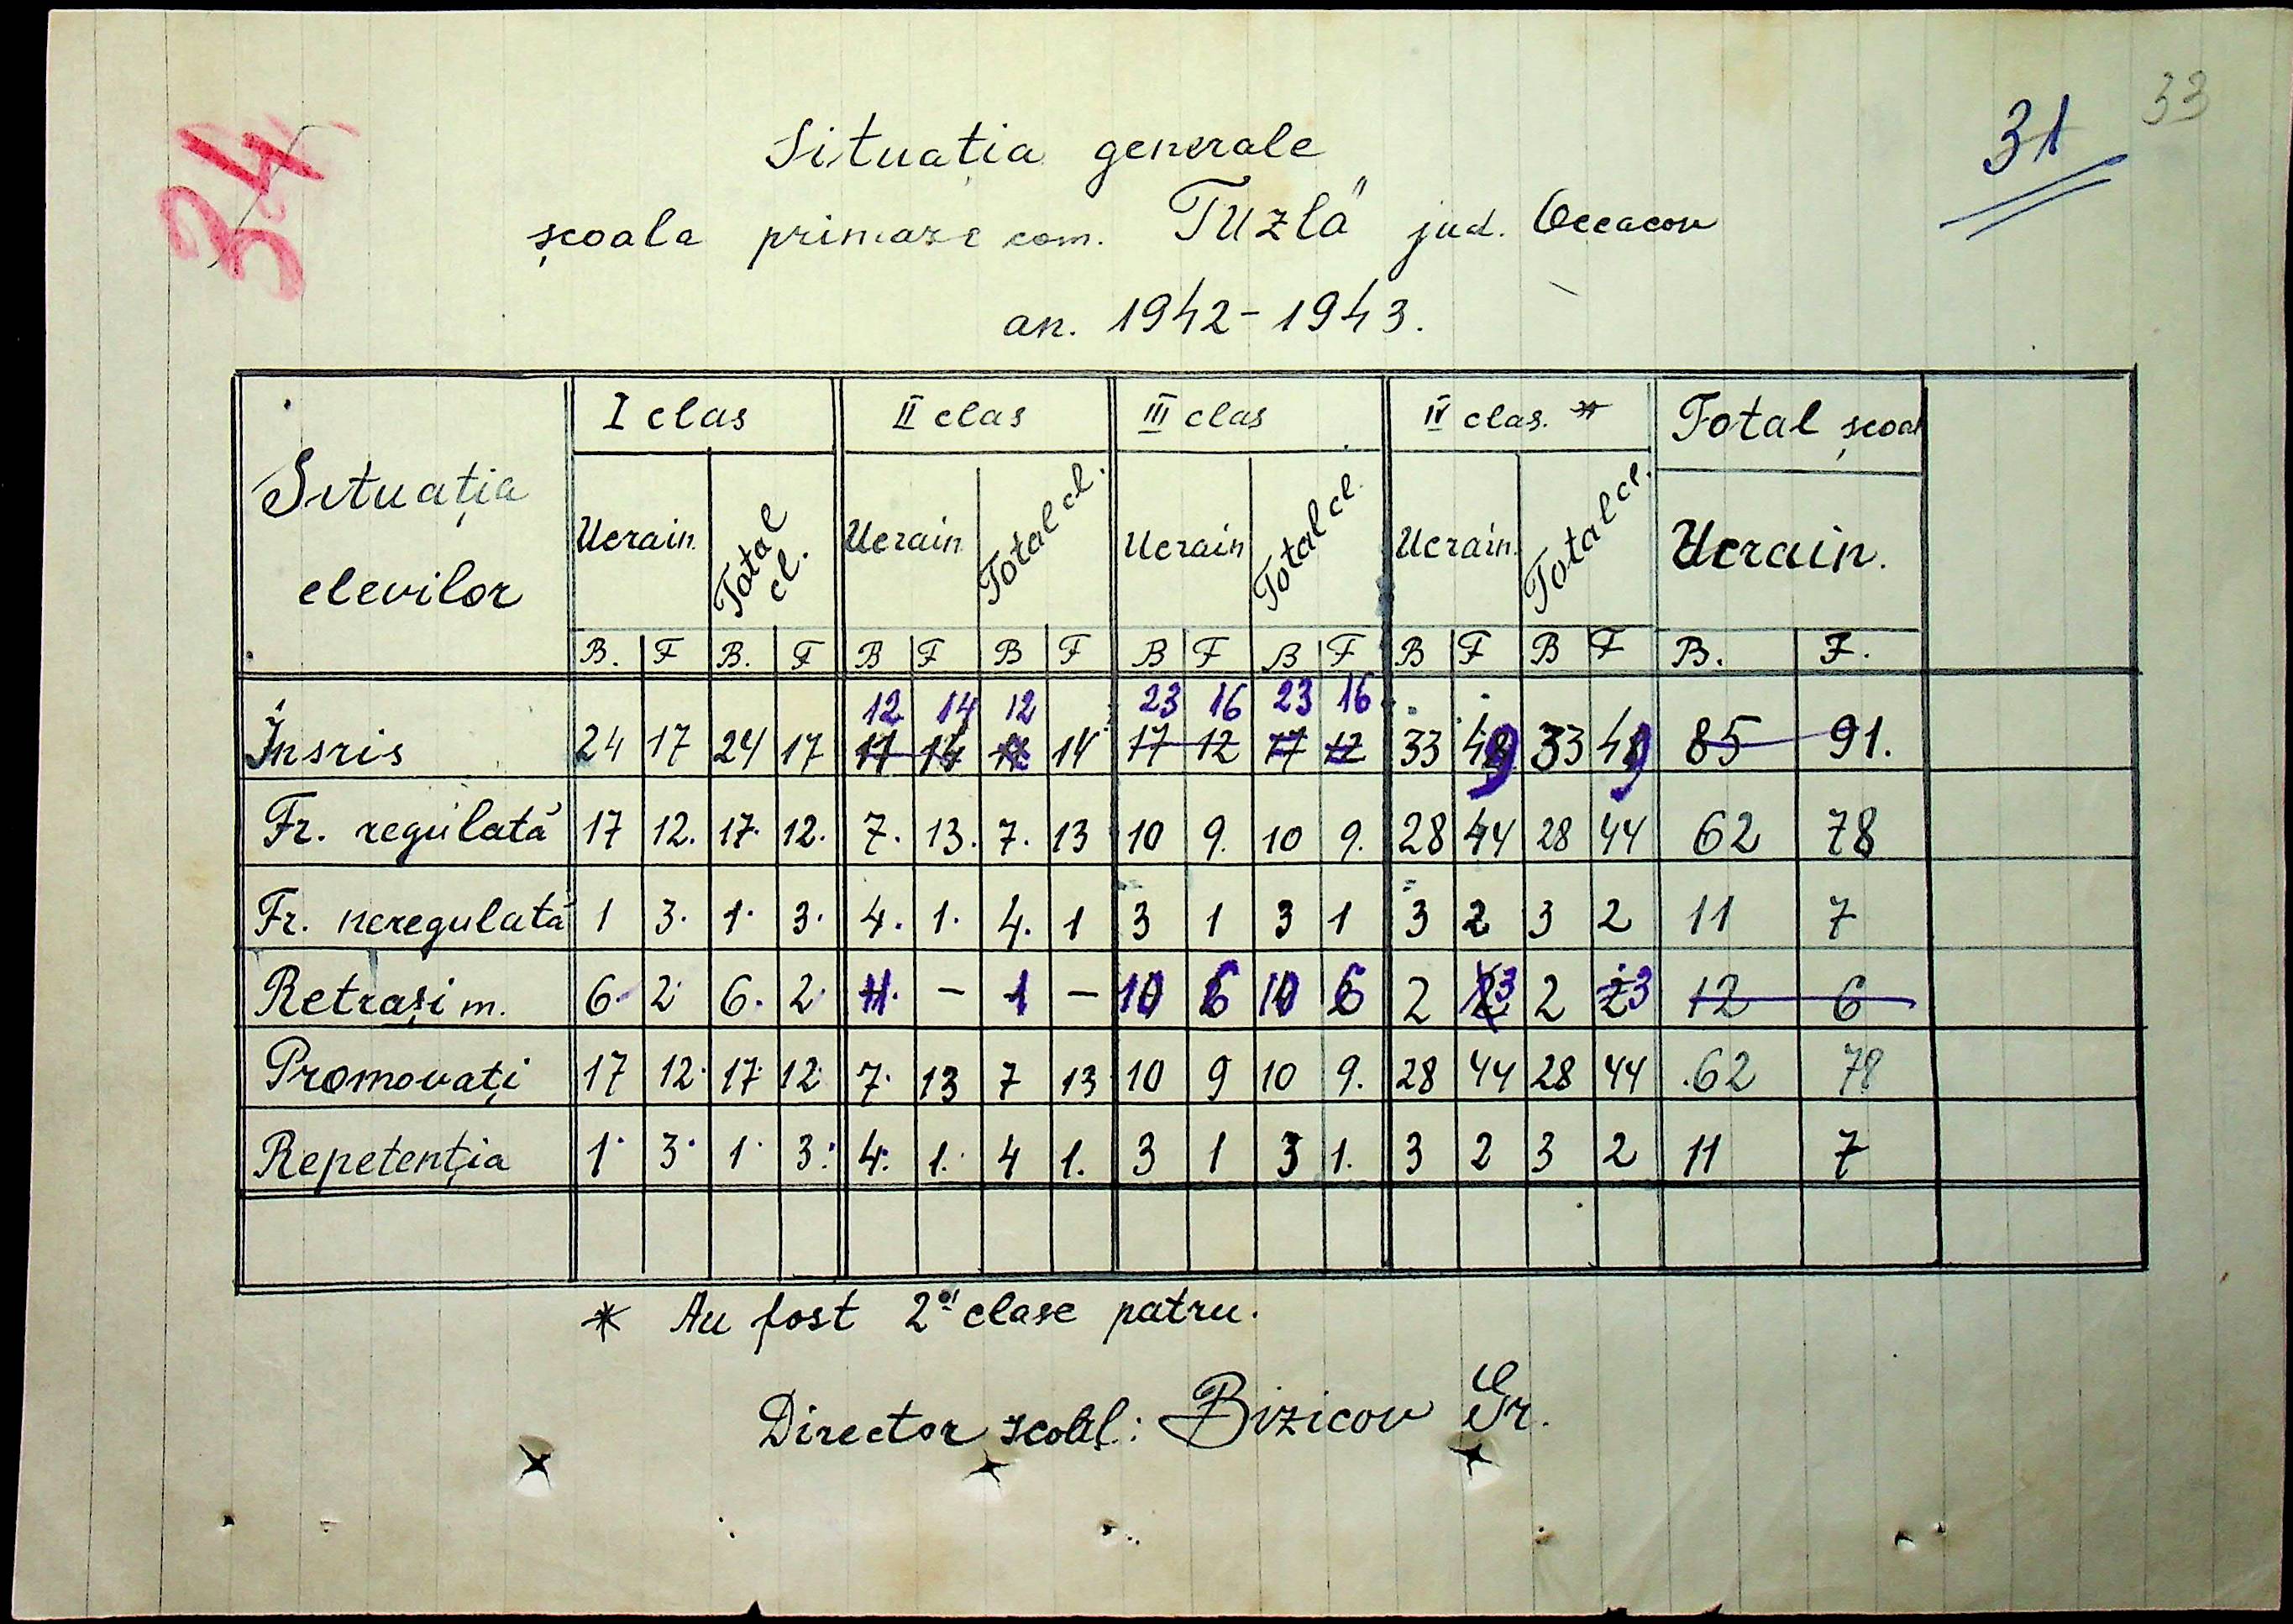 34
31
33
Situația generale
școala primare com. "Tuzla" jud. Occacov
an. 1942-1943.
Situația elevilor
I clas II clas III clas IV clas. * Total școal
Ucrain. Total cl. Ucrain Total cl. Ucrain Total cl. Ucrain. Total cl. Ucrain.
B. F B. F B F B F B F B F B F B F B. F.
12 14 12 23 16 23 16
Însris 24 17 24 17 11 14 14 17 12 17 12 33 49 33 49 85 91.
Fr. regulată 17 12. 17. 12. 7. 13. 7. 13 10 9. 10 9. 28 44 28 44 62 78
Fr. neregulată 1 3. 1. 3. 4. 1. 4. 1 3 1 3 1 3 2 3 2 11 7
Retrași m. 6. 2. 6. 2. 1. - 1 - 10 6 10 6 2 2 3 2 2 3 12 6
Promovați 17 12. 17. 12. 7. 13 7 13 10 9 10 9. 28 44 28 44 62 78
Repetenția 1. 3. 1. 3. 4. 1. 4 1. 3 1 3 1. 3 2 3 2 11 7
* Au fost 2 clase patru.
Director scoal.: Bizicov Gr.